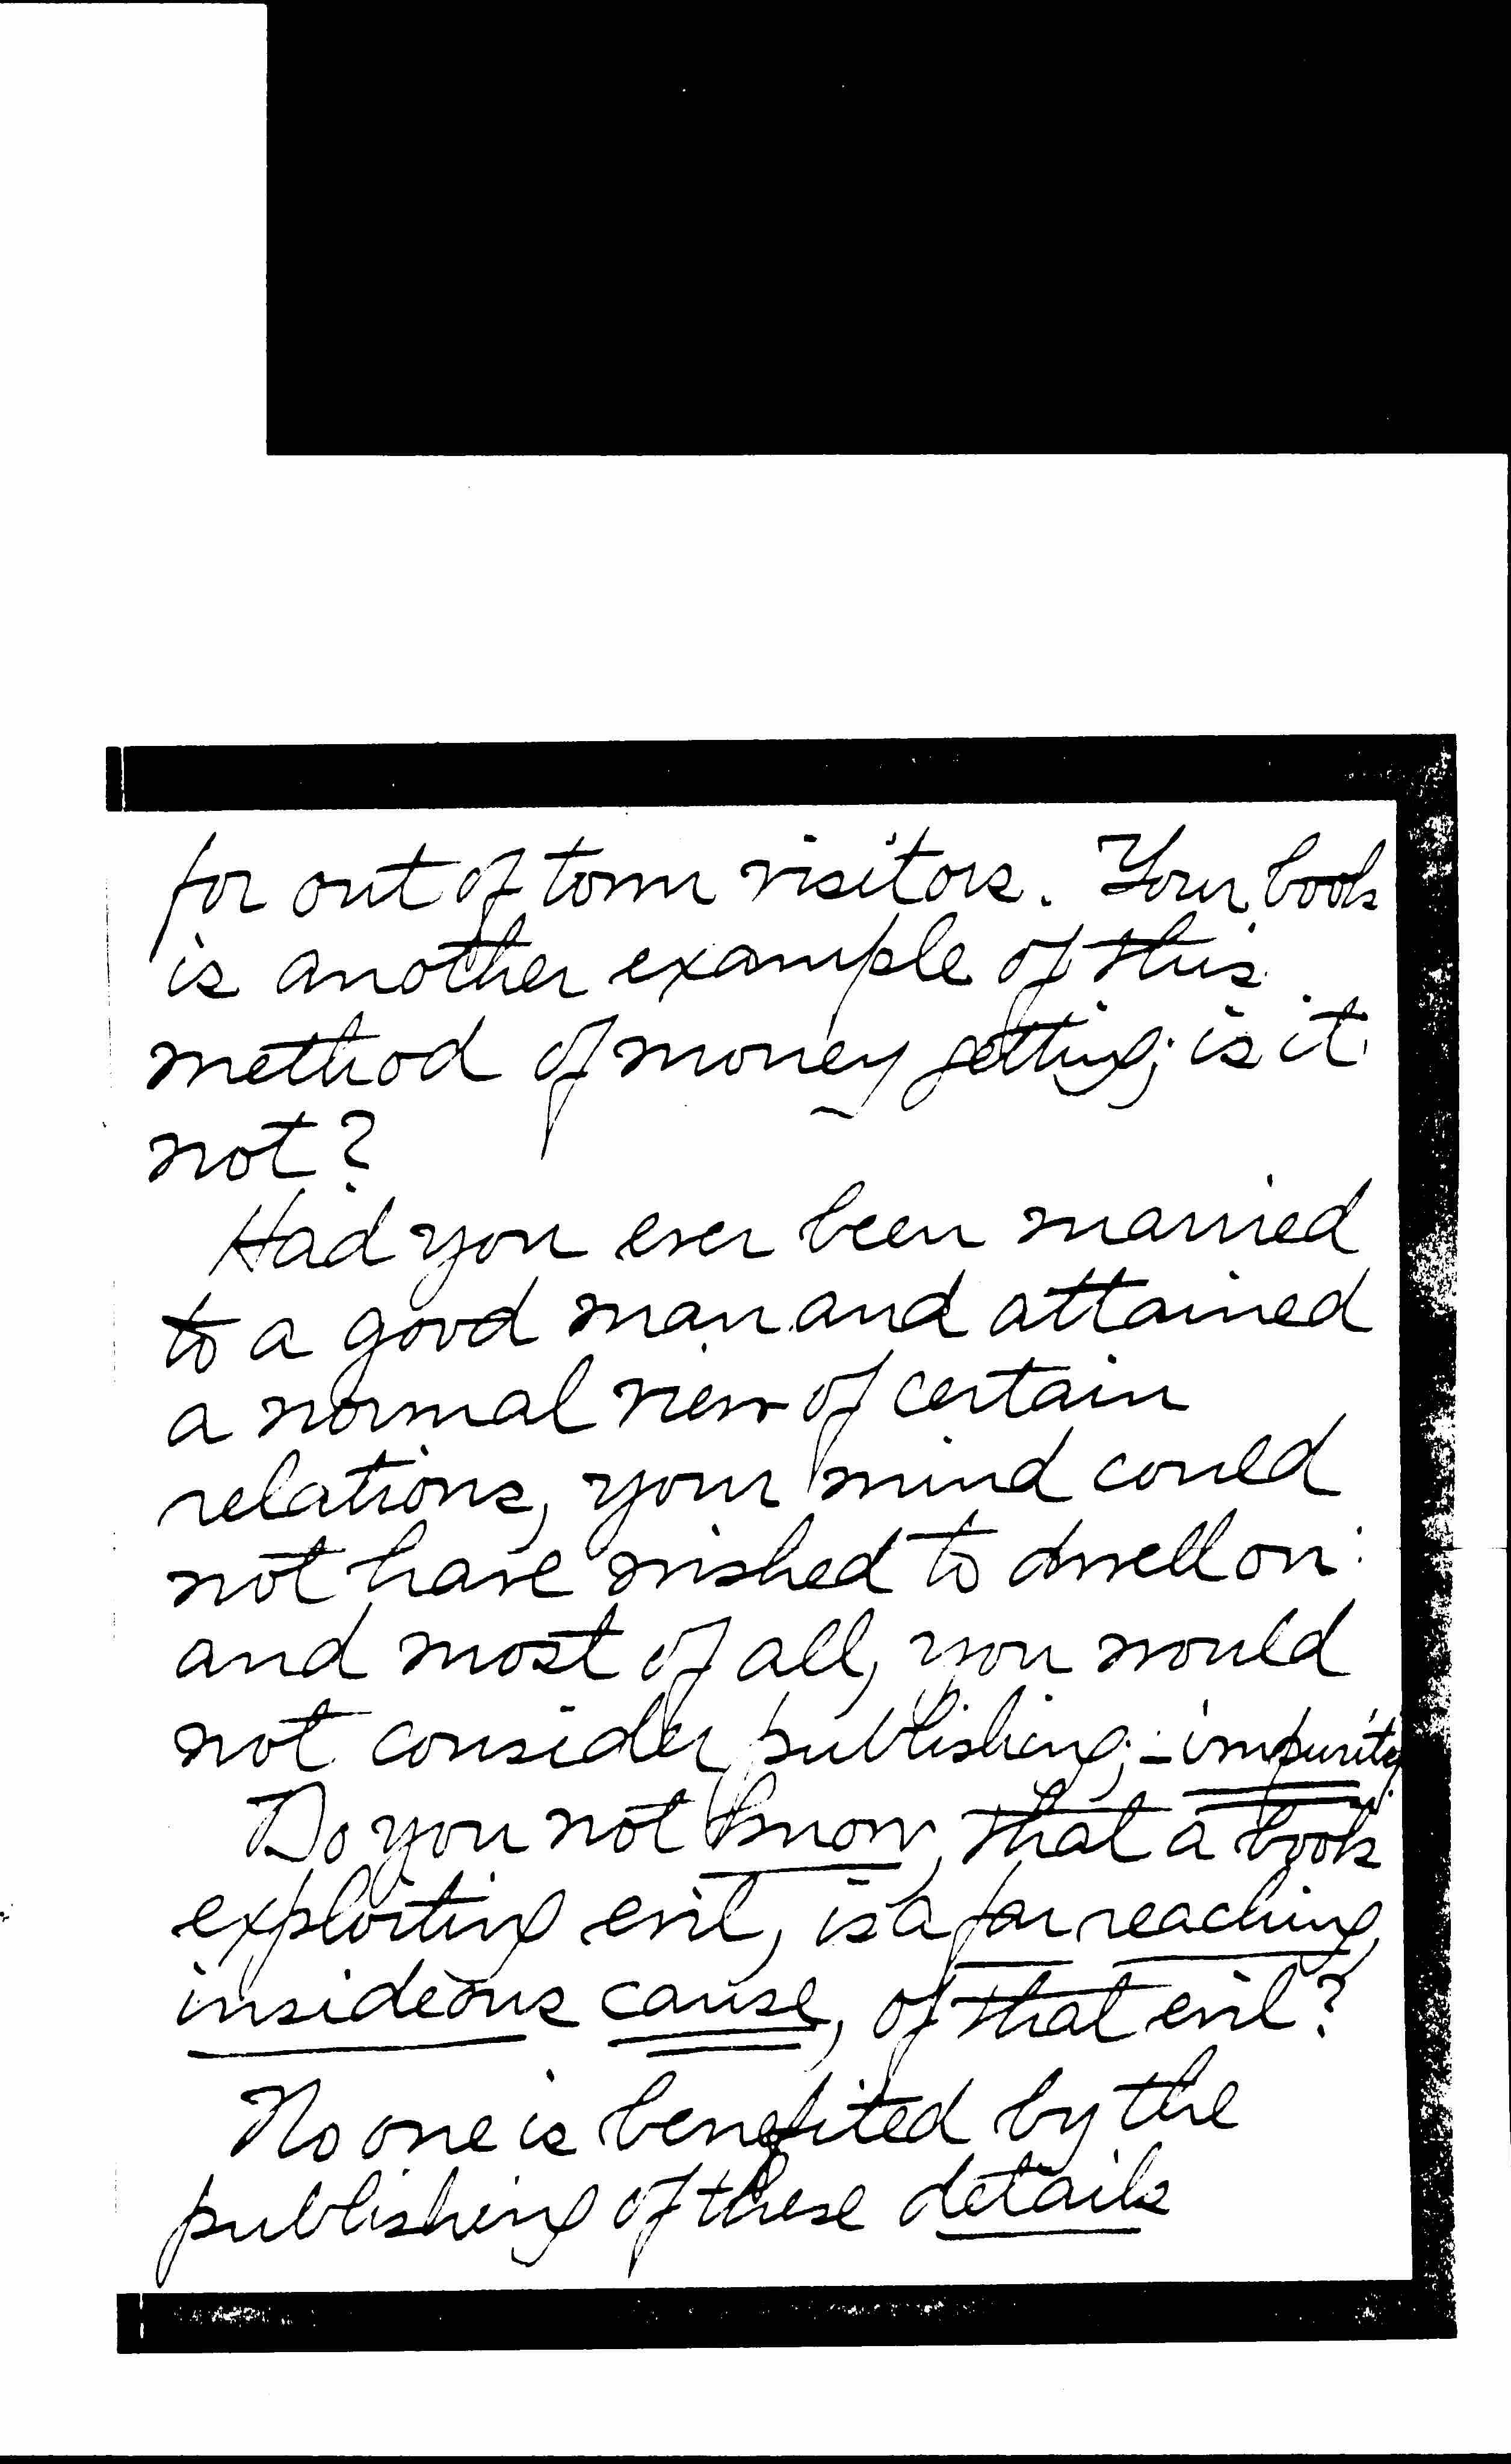 for out of town visitors. Your book
is another example of this
method of money getting; is it
not?
Had you ever been married
to a good man and attained
a normal view of certain
relations, your mind could
not have wished to dwell on:
and most of all, you would
not consider publishing; - impurity.
Do you not know, that a book
exploiting evil, is a far reaching,
insideous cause, of that evil?
No one is benefited by the
publishing of these details